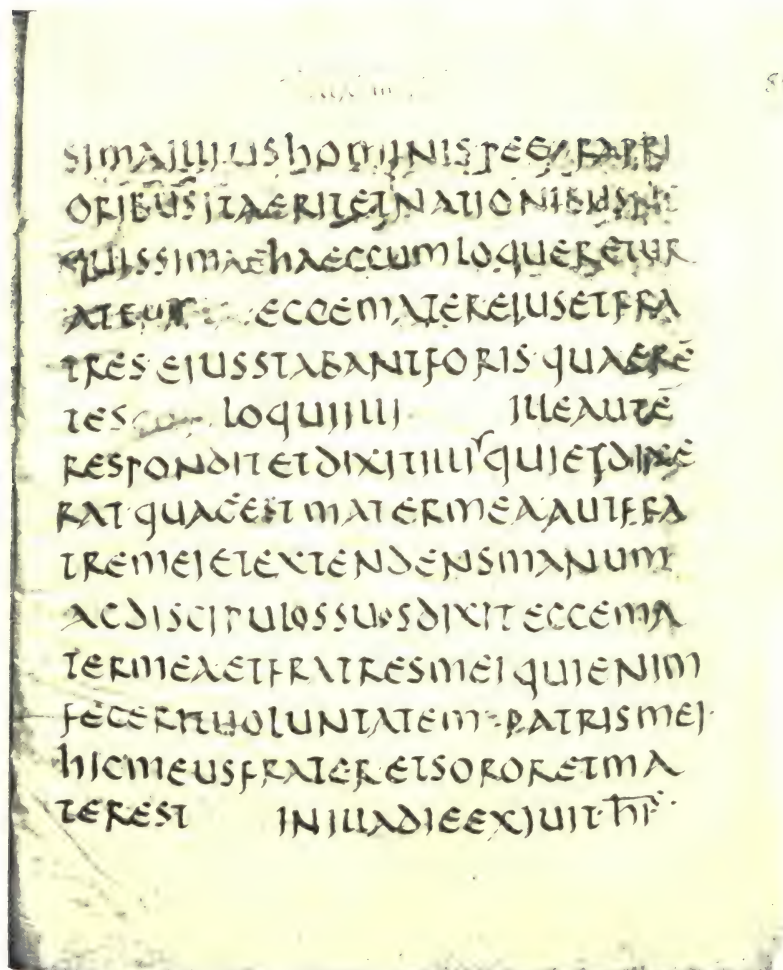 SIMA ILLIUS HOMINIS PEG PRIORI
ORIBUS ITA ERIT ET NATIONI HUIC NE
QUISSIMAE HAEC CUM LOQUERETUR
AT EUM ECCE MATER EJUS ET FRA
TRES EJUS STABANT FORIS QUAERĒ
TES LOQUI ILLI ILLE AUTĒ
RESPONDIT ET DIXIT ILLI QUI ET DIXE
RAT QUAE EST MATER MEA AUT FRA
TRE MEI ET EXTENDENS MANUM
AC DISCIPULOS SUOS DIXIT ECCE MA
TER MEA ET FRATRES MEI QUI ENIM
FECERIT UOLUNTATEM PATRIS MEI
HIC MEUS FRATER ET SOROR ET MA
TER EST IN ILLA DIE EXIUIT